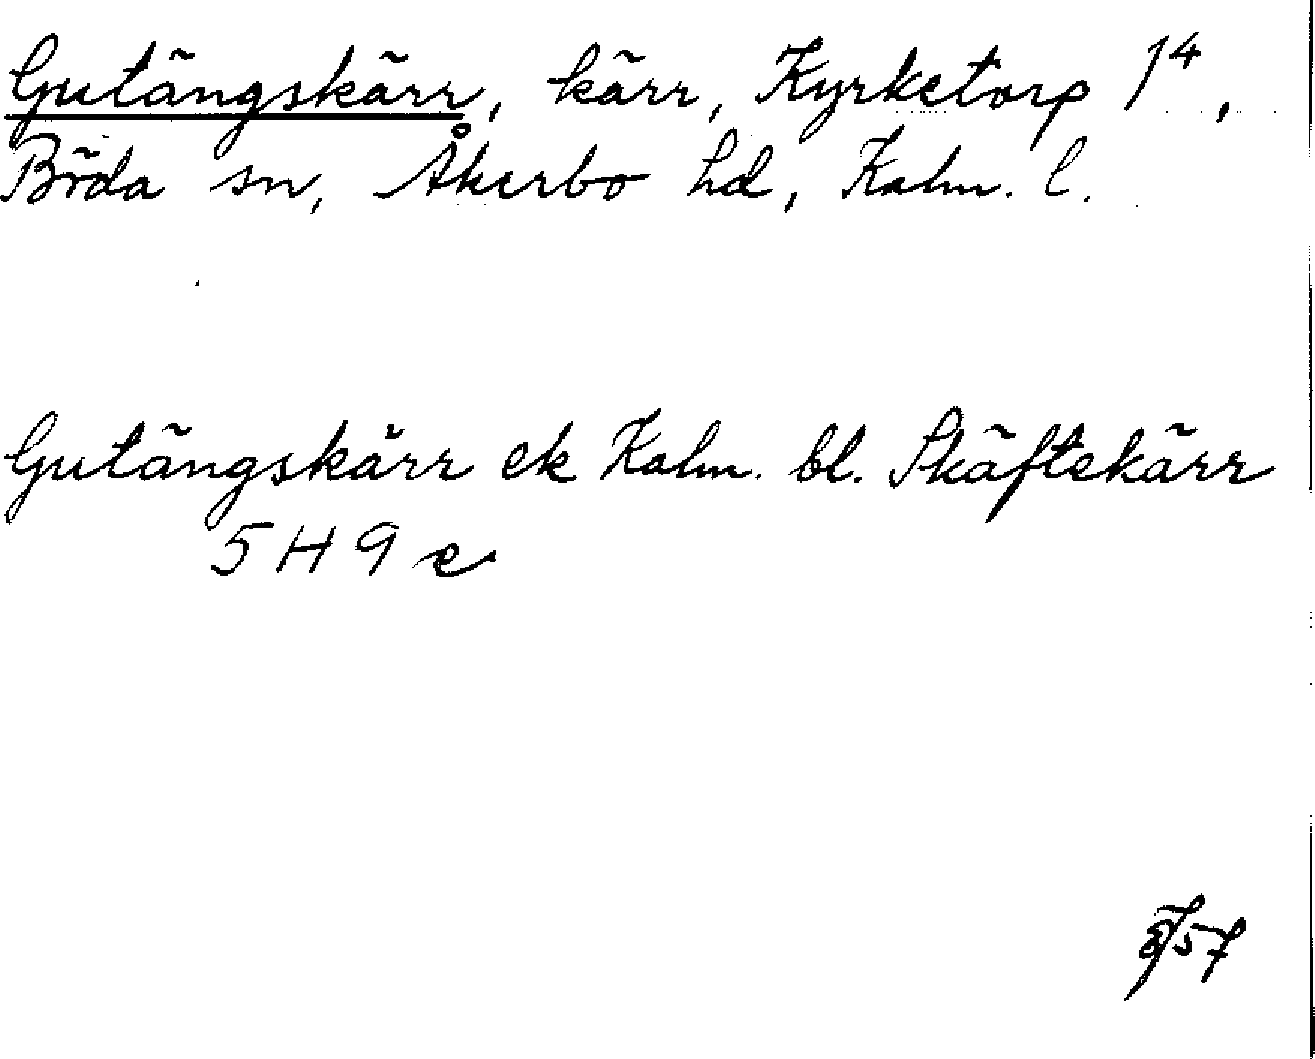 Gutängskärr, kärr, Kyrketorp 1⁴,
Böda sn, Åkerbo hd, Kalm. l.
Gutängskärr ek Kalm. bl. Skäftekärr
5 H 9 e
57